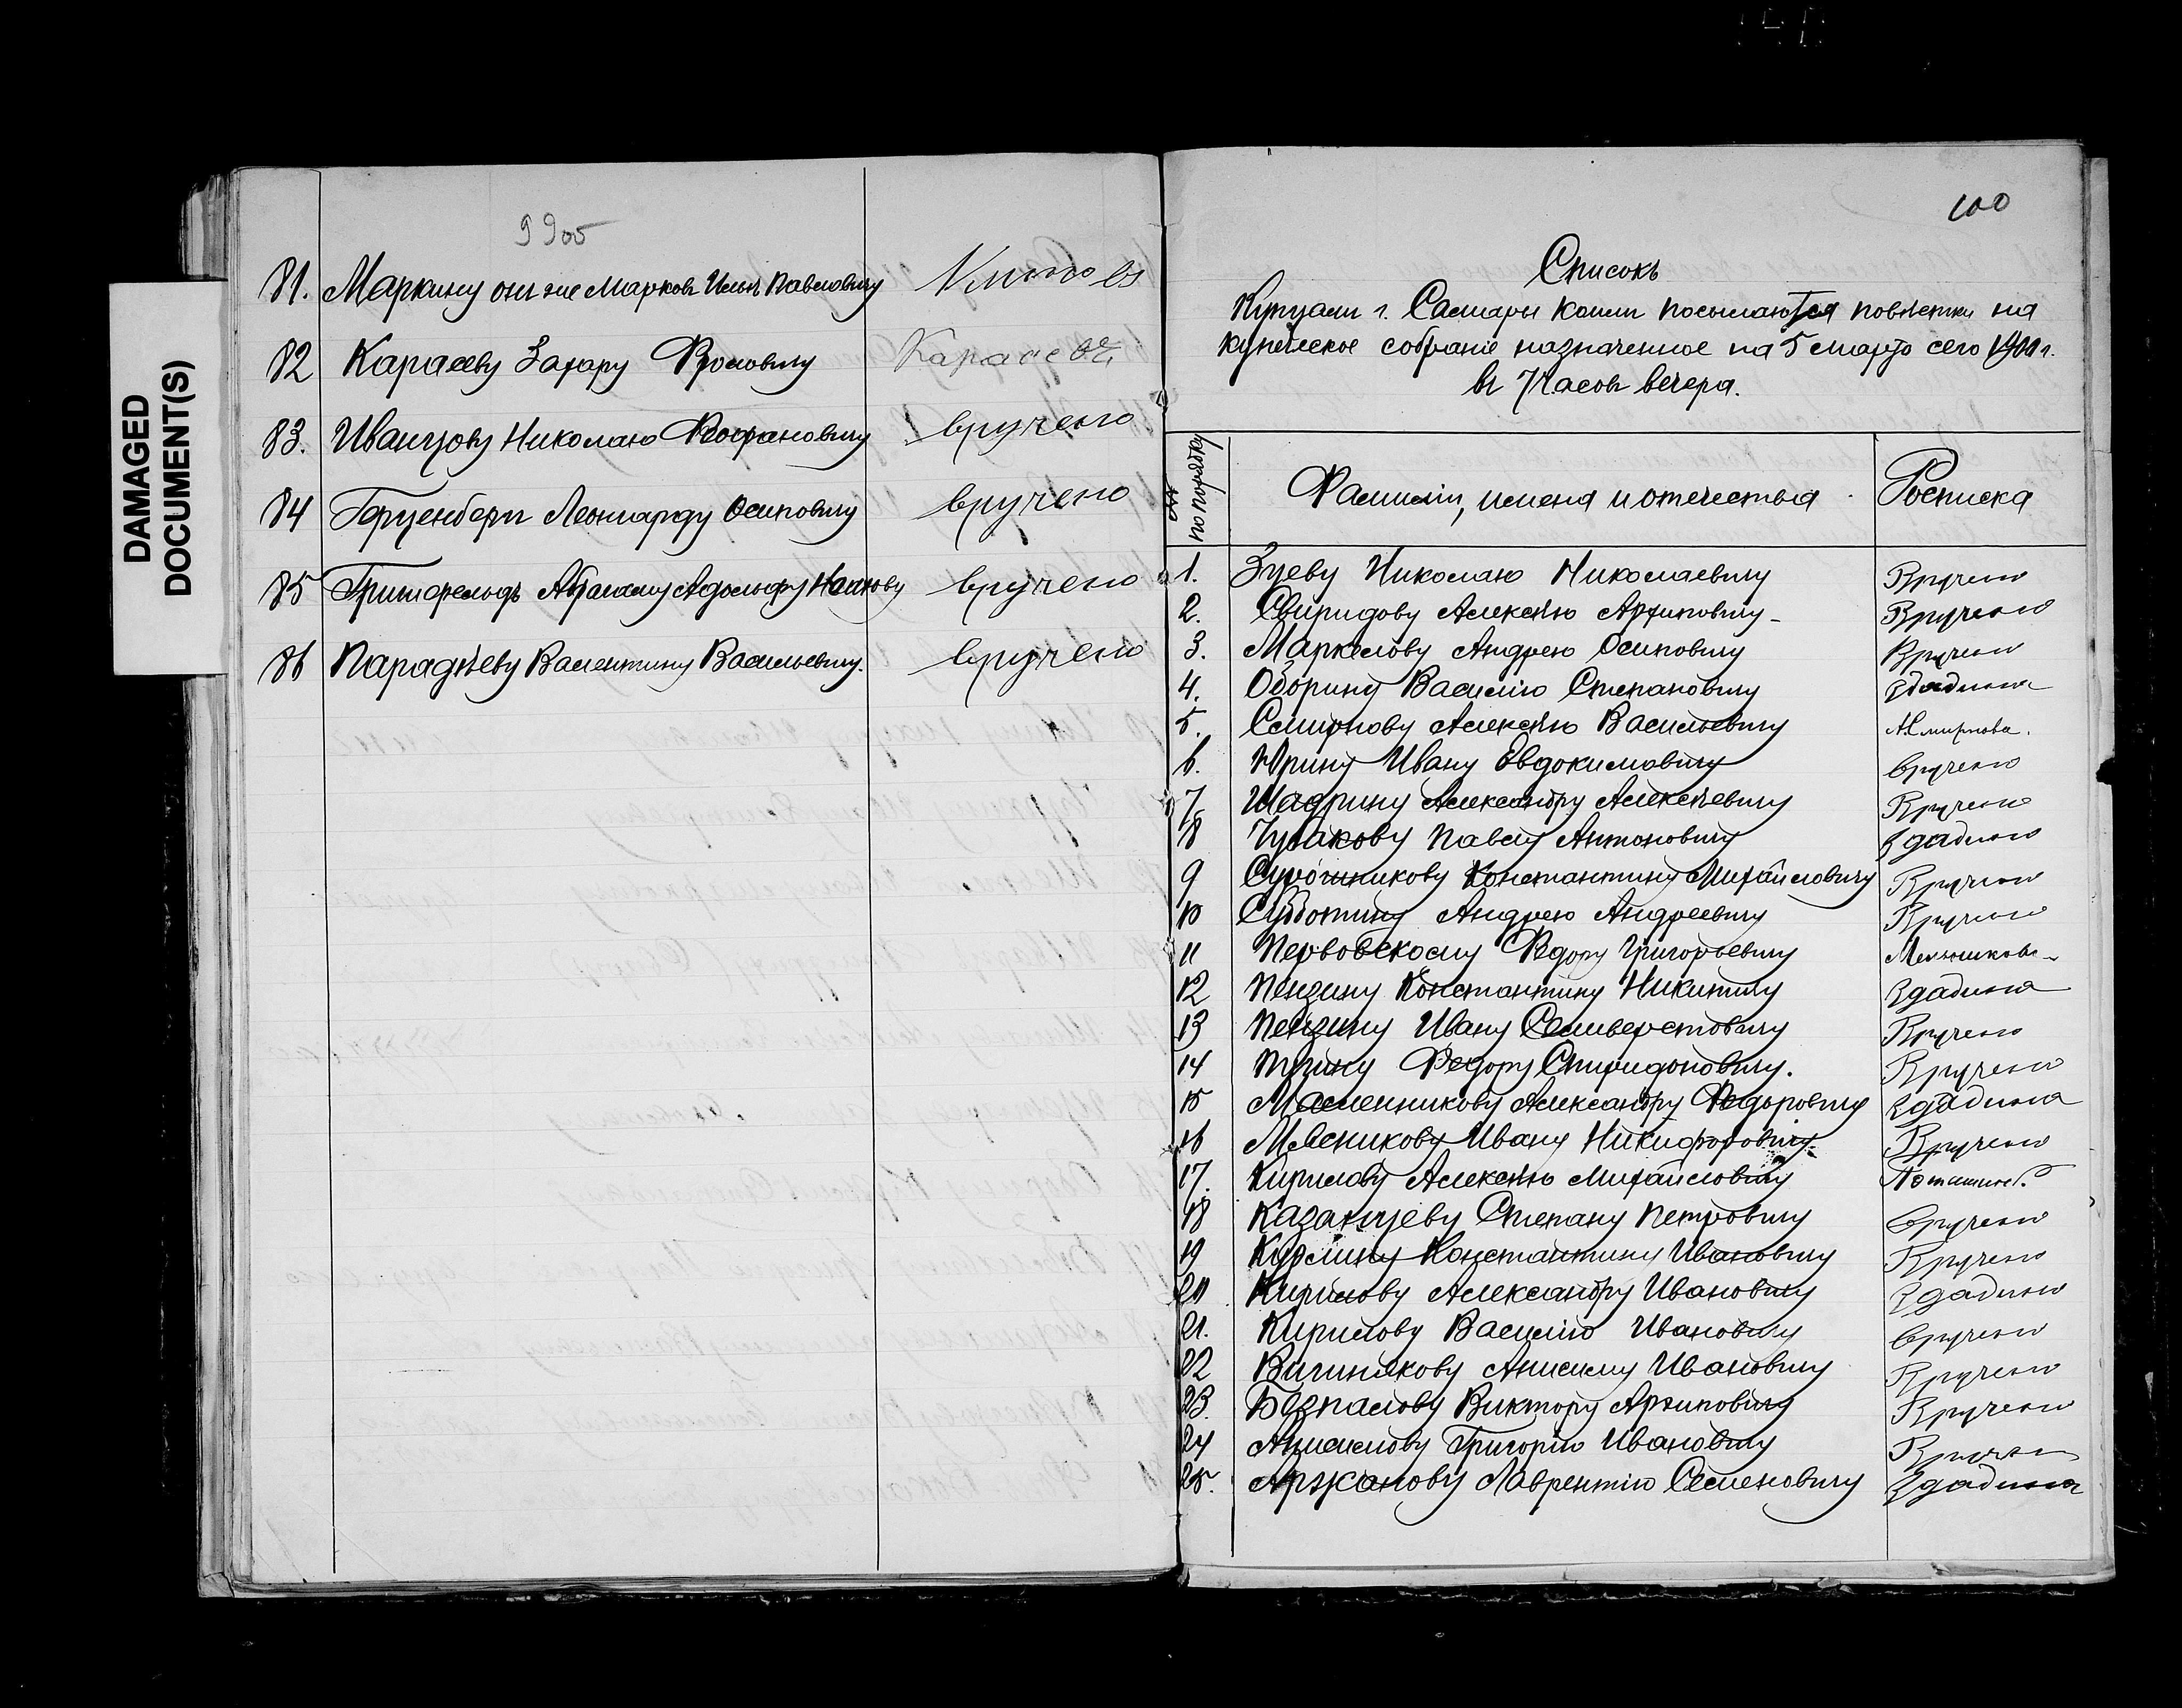 DAMAGED
DOCUMENT(S)
99об
81. Маркину он же Марков Илья Павловичу
82 Карасеву Захару Фроловичу Карасевъ
83. Иванцову Николаю Феофановичу вручено
84 Герценберг Леонарду Осиповичу вручено
85 Гринфельдъ Абрааму Адольфу вручено
86 Парадѣеву Валентину Васильевичу. вручено
100
Списокъ
Купцам г. Самары коим посылаются повѣстки на
купеческое собраніе назначенное на 5 марта сего 1900 г.
въ 7 часов вечера.
№№ по порядку
Фамиліи, имена и отечества
Росписка
1. Зуеву Николаю Николаевичу Вручено
2. Свиридову Алексѣю Архиповичу Вручено
3. Маркелову Андрею Осиповичу Вручено
4. Оборину Василію Степановичу
5. Смирнову Алексѣю Васильевичу А Смирнова.
6. Юрину Ивану Евдокимовичу вручено
7 Шадрину Александру Алексѣевичу Вручено
8 Чуракову Павлу Антоновичу
9 Сурошникову Константину Михайловичу Вручено
10 Субботину Андрею Андреевичу Вручено
11 Первовскому Федору Григорьевичу
12 Пензину Константину Никитичу
13 Пензину Ивану Селиверстовичу Вручено
14 Федору Спиридоновичу. Вручено
15 Масленникову Александру Федоровичу
16 Мясникову Ивану Никифоровичу Вручено
17. Кирилову Алексѣю Михайловичу
18 Казанцеву Степану Петровичу вручено
19 Курлину Константину Ивановичу Вручено
20 Кирилову Александру Ивановичу
21. Кирилову Василію Ивановичу вручено
22 Анисиму Ивановичу Вручено
23. Безпалову Виктору Архиповичу Вручено
24 Аннаеву Григорію Ивановичу Вручено
25. Аржанову Лаврентію Семеновичу